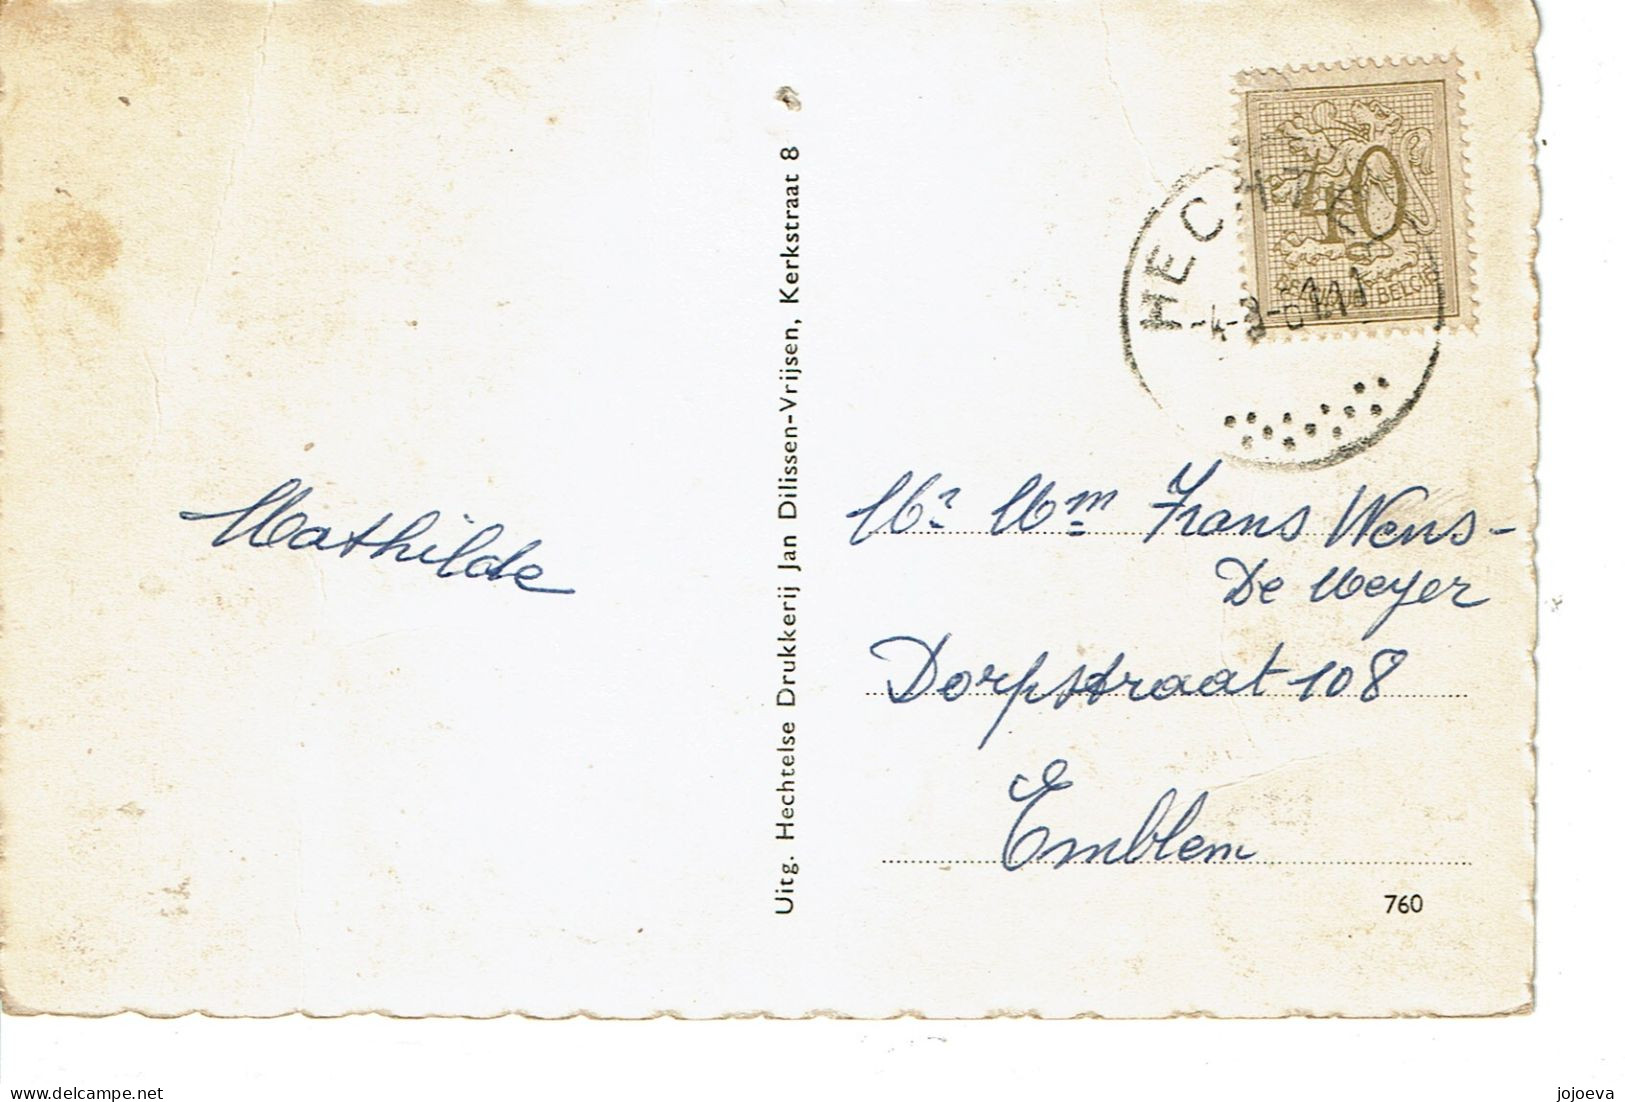 Mathilde
Uitg. Hechtelse Drukkerij Jan Dilissen-Vrijsen, Kerkstraat 8
40
BELGIE
HEC
Mr Mme Frans Wens-
De Meyer
Dorpstraat 108
Emblem
760
delcampe.net
jojoeva